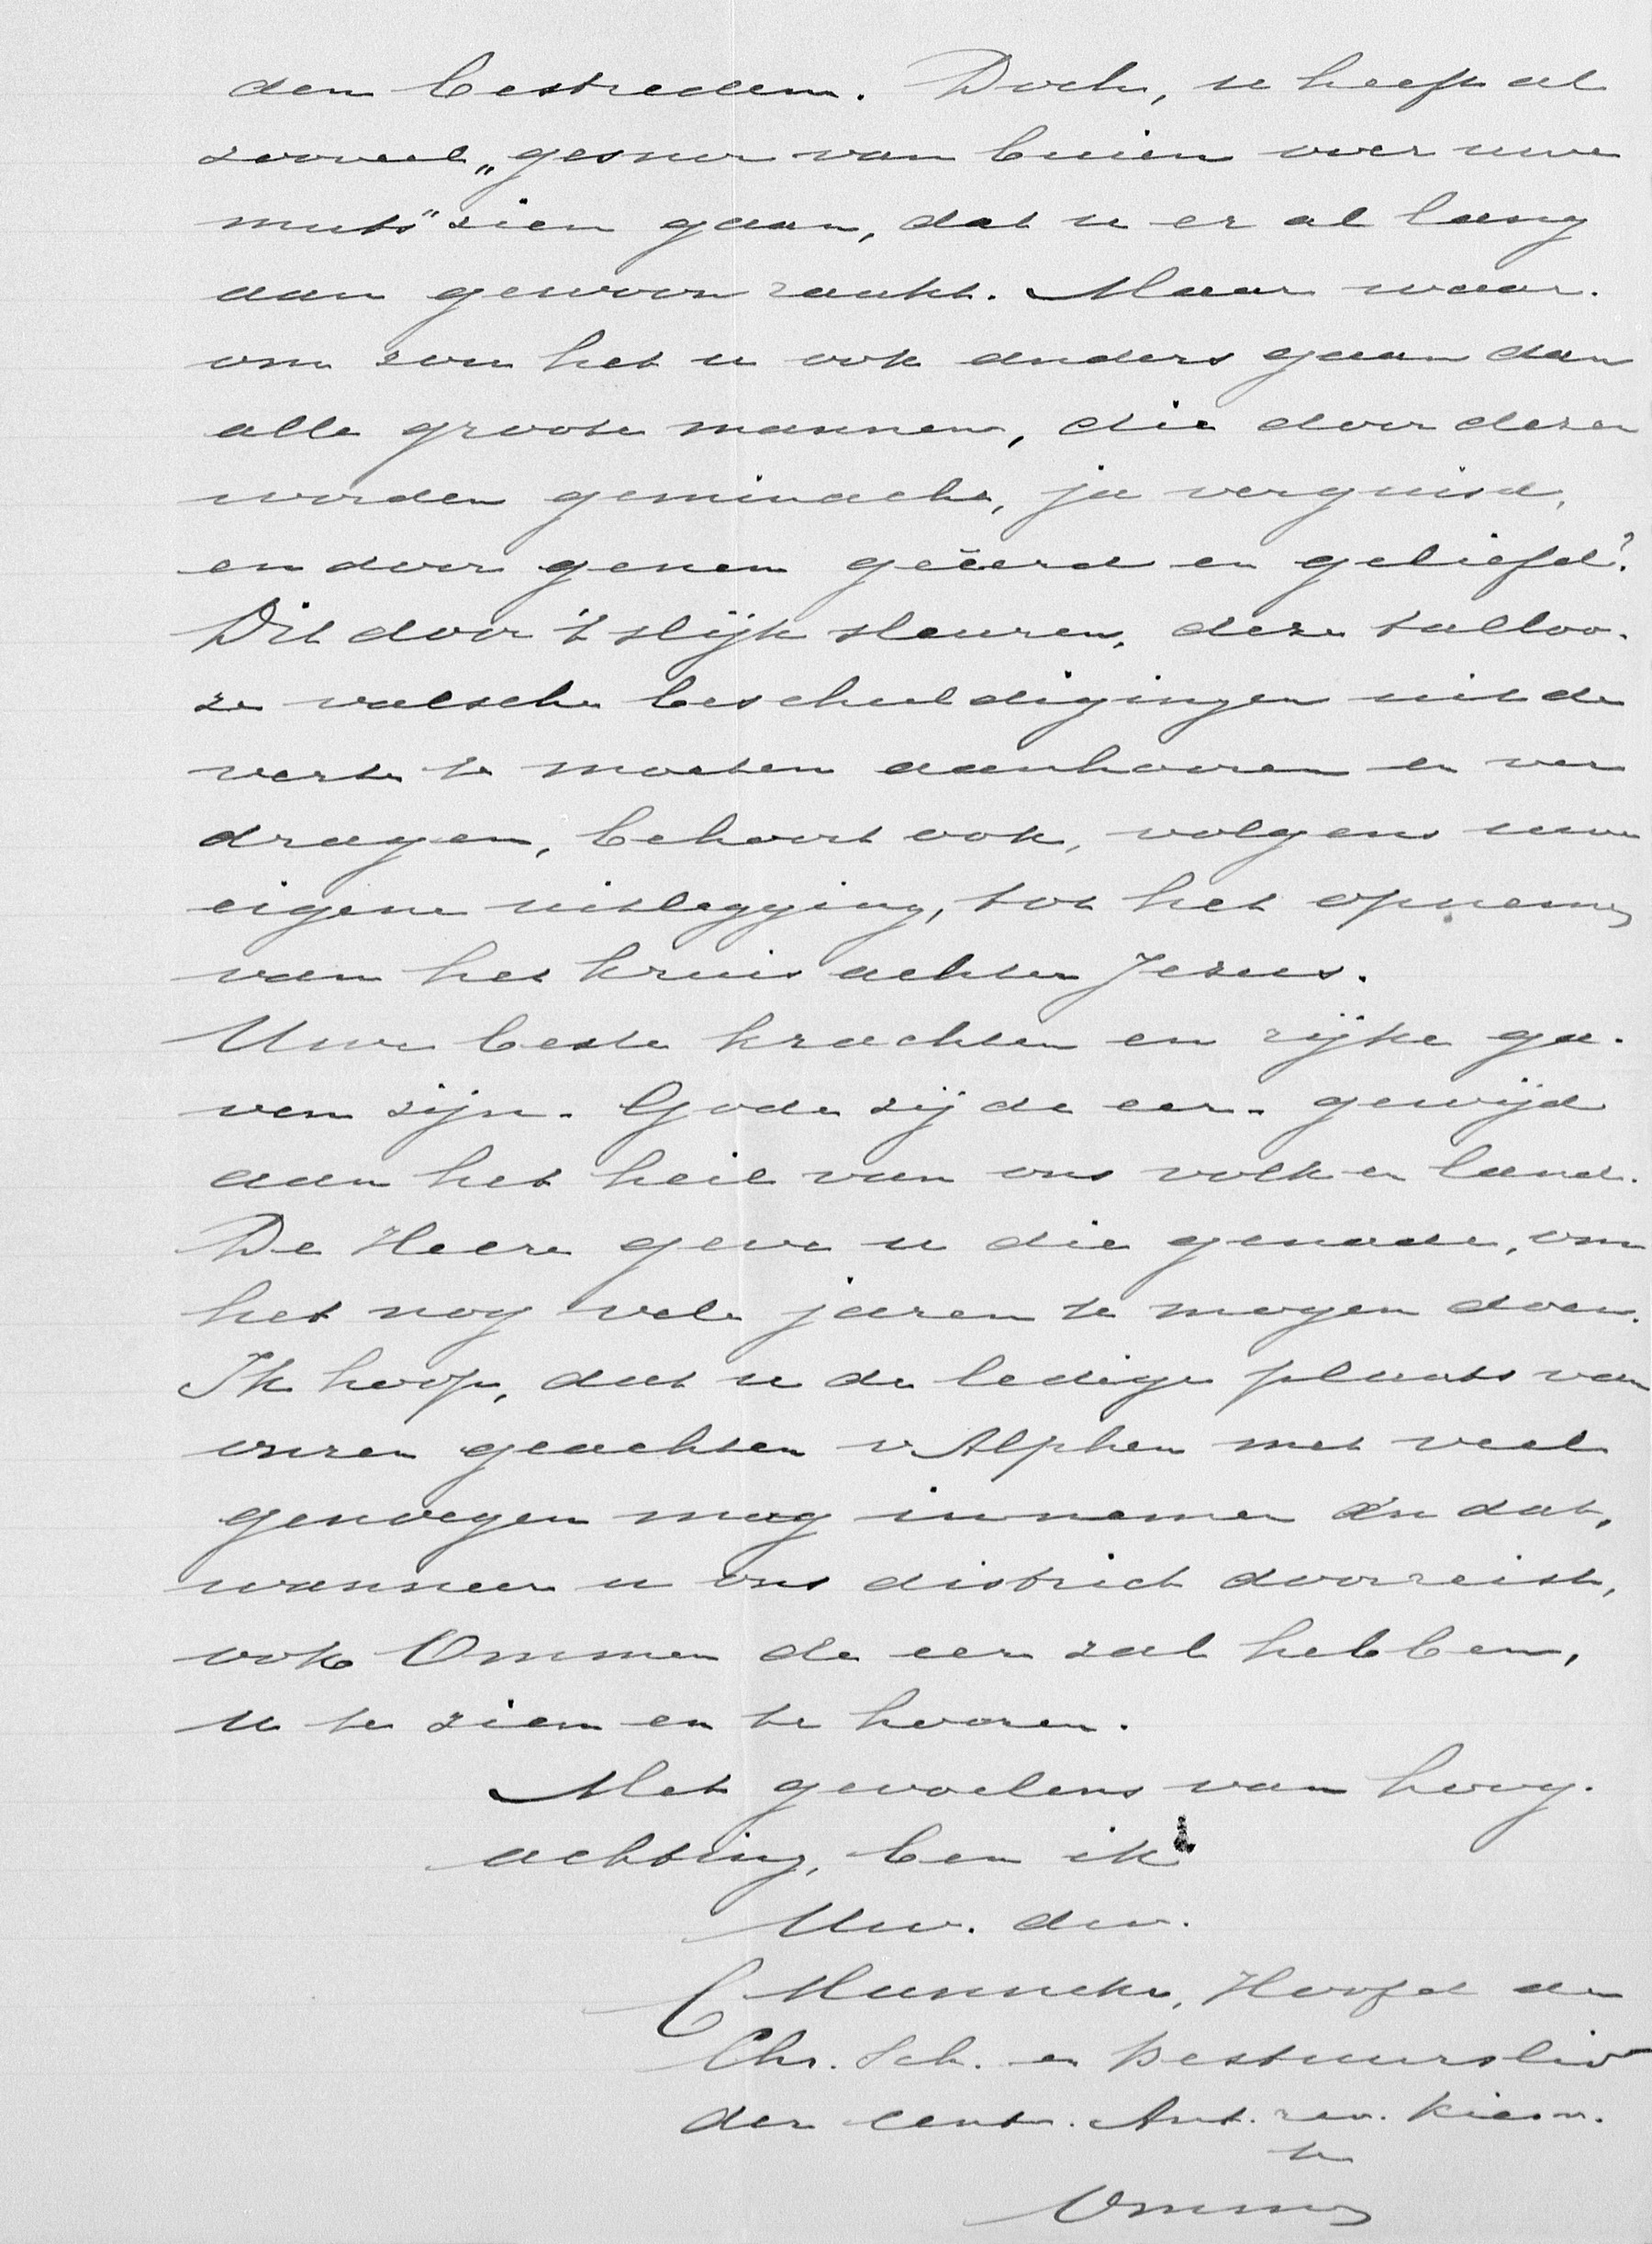 den bestreden. Doch, u heeft al
zooveel „gesnor van buien over uwe
muts" zien gaan, dat u er al lang
aan gewoon raakt. Maar waar-
om zou het u ook anders gaan dan
alle groote mannen, die door dezen
worden geminacht, ja verguisd,
en door genen geëerd en geliefd?
Dit door 't slijk sleuren, deze talloo-
ze valsche beschuldigingen uit de
verte te moeten aanhooren en ver
dragen, behoort ook, volgens uwe
eigene uitlegging, tot het opnemen
van het kruis achter Jezus.
Uwe beste krachten en rijke ga-
ven zijn - Gode zij de eer - gewijd
aan het heil van ons volk en land.
De Heere geve u die genade, om
het nog vele jaren te mogen doen.
Ik hoop, dat u de ledige plaats van
onzen geachten v. Alphen met veel
genoegen mag innemen en dat,
wanneer u ons district doorreist,
ook Ommen de eer zal hebben,
u te zien en te hooren.
Met gevoelens van hoog-
achting, ben ik
Uw. dw.
C Munneke, Hoofd der
Chr. Sch. en Bestuurslid
der centr. Ant. rev. Kiesv.
te
Ommen